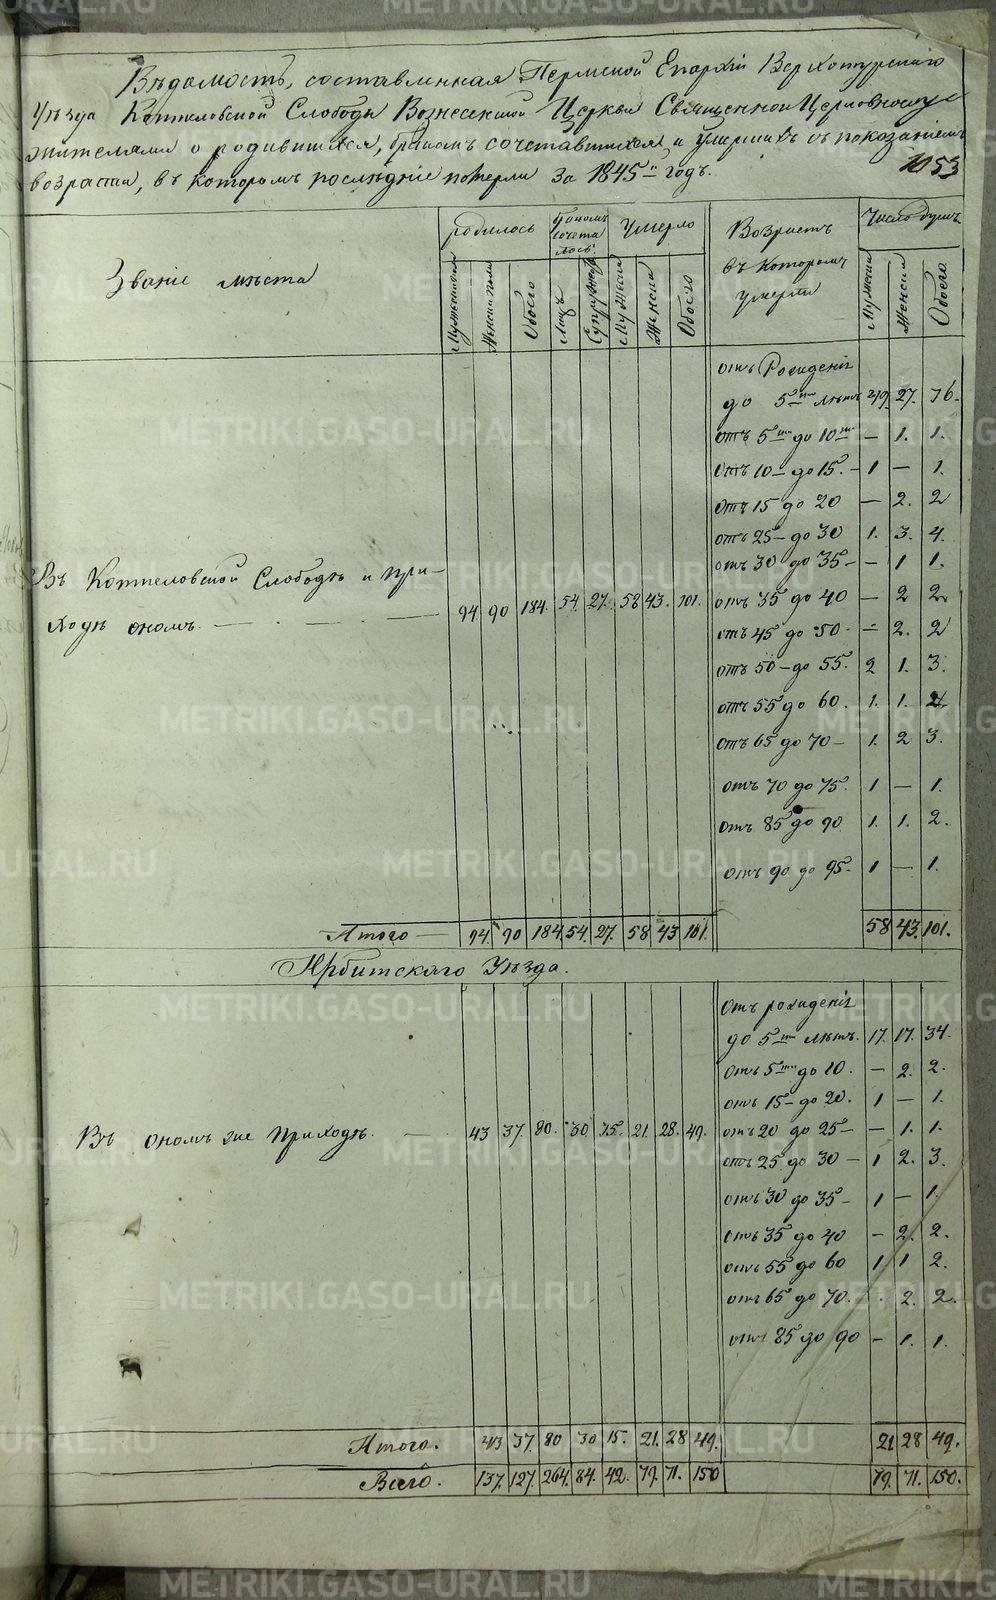 Вѣдомость, составленная Пермской Епархіи Верхотурскаго
Уѣзда Коптеловской Слободы Вознесенской Церкви Священноцерковнослу-
жителями о родившихся, бракомъ сочетавшихся и умершихъ съ показаніемъ
возраста, въ которомъ послѣдніе померли за 1845й годъ.
1053
Званіе мѣста
родилось
бракомъ сочета лось
Умерло
Возрастъ въ которомъ умерли
Число душъ
Мужескаго Женска пола Обоего Лицъ Супружес Мужеска Женска Обоего Мужеска Женска Обоего
отъ Рожденія
до 5ти лѣтъ 49. 27. 76.
отъ 5ти до 10ти — 1. 1.
отъ 10 — до 15. — 1 — 1.
отъ 15 до 20 — 2. 2
отъ 25 — до 30 1. 3. 4.
отъ 30 до 35 — — 1 1.
Въ Коптеловской Слободѣ и при-
ходѣ ономъ. — 94 90 184. 54. 27. 58 43. 101. отъ 35 до 40 — 2 2
отъ 45 до 50 - — 2. 2
отъ 50 — до 55. 2 1. 3.
отъ 55 до 60. 1. 1. 2.
отъ 65 до 70 — 1. 2 3.
отъ 70 до 75. 1 — 1.
отъ 85 до 90 1. 1. 2.
отъ 90 до 95. 1 — 1.
Итого — 94. 90 184 54. 27. 58 43 101. 58 43. 101.
Ирбитскаго Уѣзда.
отъ рожденія
до 5ти лѣтъ. 17. 17. 34.
отъ 5ти до 10. — 2. 2.
отъ 15 — до 20. 1 — 1.
Въ ономъ же приходѣ. — 43 37. 80. 30 15. 21. 28. 49. отъ 20 до 25 — — 1. 1.
отъ 25 до 30 — 1 2. 3.
отъ 30 до 35 — 1 — 1.
отъ 35 до 40 — 2. 2.
отъ 55 до 60 1. 1 2.
отъ 65 до 70. . 2. 2.
отъ 85 до 90 — 1. 1.
Итого. 43 37. 80 30 15. 21. 28 49. 21 28 49.
Всего. 137. 127. 264. 84. 42. 79. 71. 150 79. 71. 150.
METRIKI.GASO-URAL.RU